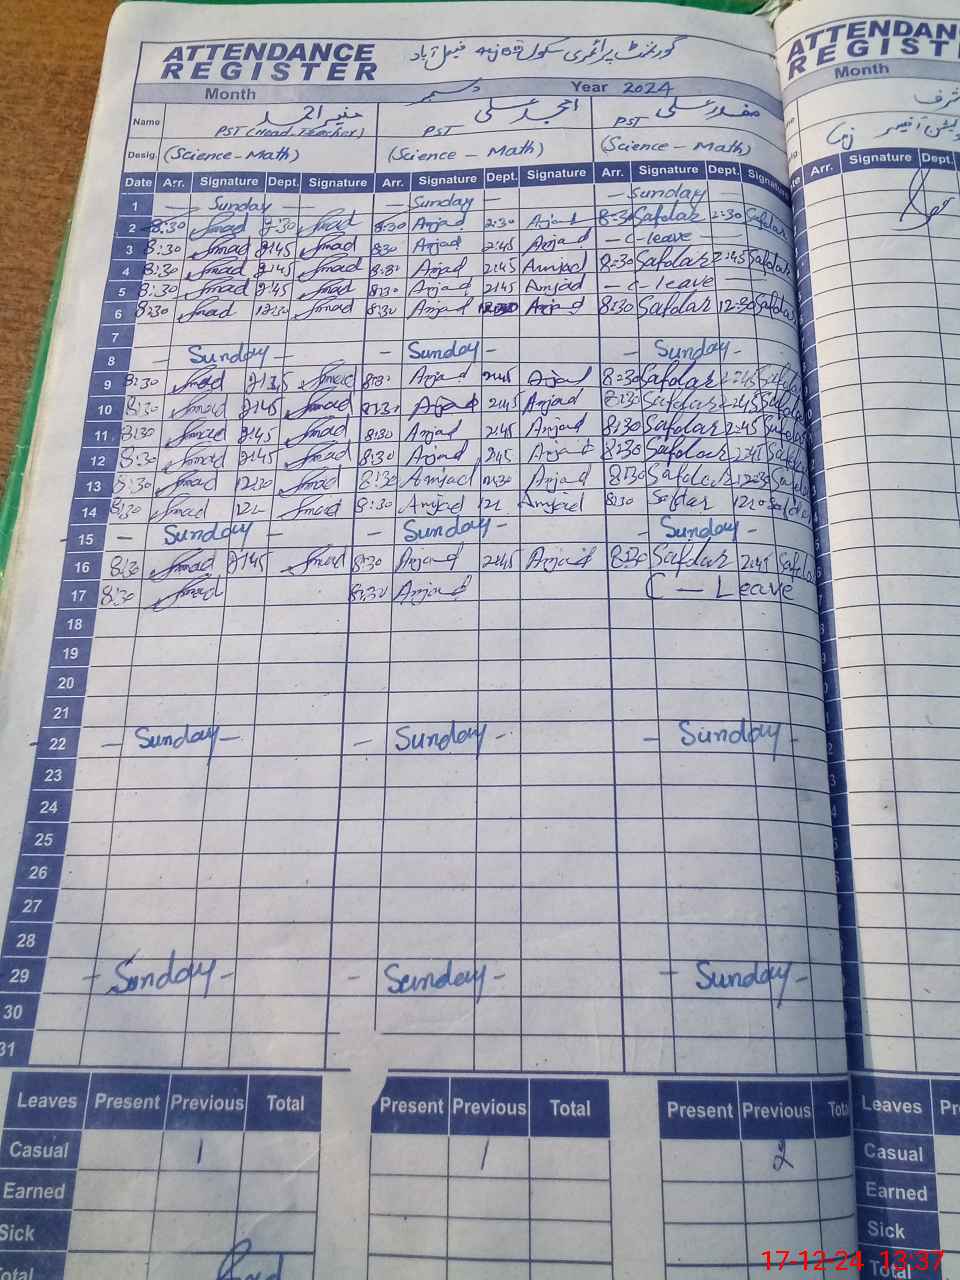 ATTENDANCE
REGISTER
گورنمنٹ پرائمری سکول
Month دسمبر Year 2024
Name منیر احمد امجد علی صفدر علی
PST (Head Teacher) PST PST
Desig. (Science-Math) (Science - Math) (Science - Math)
Date Arr. Signature Dept. Signature Arr. Signature Dept. Signature Arr. Signature Dept. Signature
1 - Sunday - - Sunday - - Sunday -
2 8:30 2:30 8:30 Amjad 2:30 Amjad 8:30 Safdar 2:30 Safdar
3 8:30 2:45 8:30 Amjad 2:45 Amjad - C-leave -
4 8:30 2:45 8:30 Amjad 2:45 Amjad 8:30 Safdar 2:45 Safdar
5 8:30 2:45 8:30 Amjad 2:45 Amjad - C-leave -
6 8:30 12:30 8:30 Amjad Amjad 8:30 Safdar 12:30 Safdar
7
8 - Sunday - - Sunday - - Sunday -
9 8:30 2:45 8:30 Amjad 2:45 Amjad 8:30 Safdar 2:45 Safdar
10 8:30 2:45 8:30 Amjad 2:45 Amjad 8:30 Safdar 2:45 Safdar
11 8:30 2:45 8:30 Amjad 2:45 Amjad 8:30 Safdar 2:45 Safdar
12 8:30 2:45 8:30 Amjad 2:45 Amjad 8:30 Safdar 2:45 Safdar
13 8:30 12:30 8:30 Amjad 12:30 Amjad 8:30 Safdar 12:30 Safdar
14 8:30 8:30 Amjad Amjad 8:30 Safdar Safdar
15 - Sunday - - Sunday - - Sunday -
16 8:30 2:45 8:30 Amjad 2:45 Amjad 8:30 Safdar 2:45 Safdar
17 8:30 8:30 Amjad C - Leave
18
19
20
21
22 - Sunday - - Sunday - - Sunday -
23
24
25
26
27
28
29 - Sunday - - Sunday - - Sunday -
30
31
Leaves Present Previous Total Present Previous Total Present Previous Total
Casual 1 1 2
Earned
Sick
Total
ATTENDAN
REGIST
Month
Arr. Signature Dept.
Leaves
Casual
Earned
Sick
Total
17-12-24 13:37